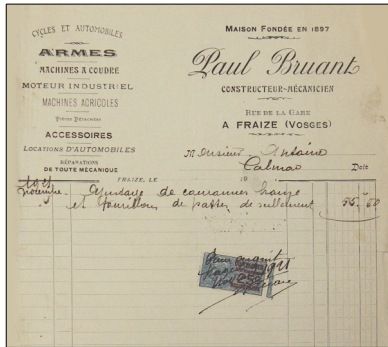 CYCLES ET AUTOMOBILES
ARMES
MACHINES A COUDRE
MOTEUR INDUSTRIEL
MACHINES AGRICOLES
PIÈCES DÉTACHÉES
ACCESSOIRES
LOCATIONS D'AUTOMOBILES
RÉPARATIONS
DE TOUTE MÉCANIQUE
MAISON FONDÉE EN 1897
Paul Bruant
CONSTRUCTEUR-MÉCANICIEN
RUE DE LA GARE
A FRAIZE (VOSGES)
Monsieur Antoine
Doit
FRAIZE, LE 19
1921
Novembre Ajustage de couronnes bronze
et tourillons de pattes de roulement
Pour acquit